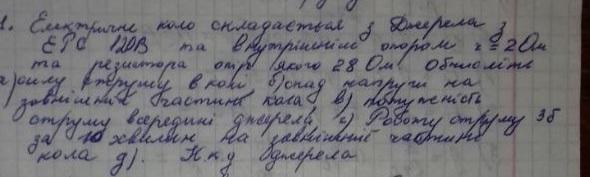 1. Електричне коло складається з Джерела з
ЕРС 120В та внутрішнім опором r = 2 Ом
та резистора опір якого 28 Ом Обчисліть
а) силу струму в колі б) спад напруги на
зовнішній частині кола в) потужність
струму всередині джерела г) Роботу струму зб
за 10 хвилин на зовнішній частині
кола д). К.к.д джерела